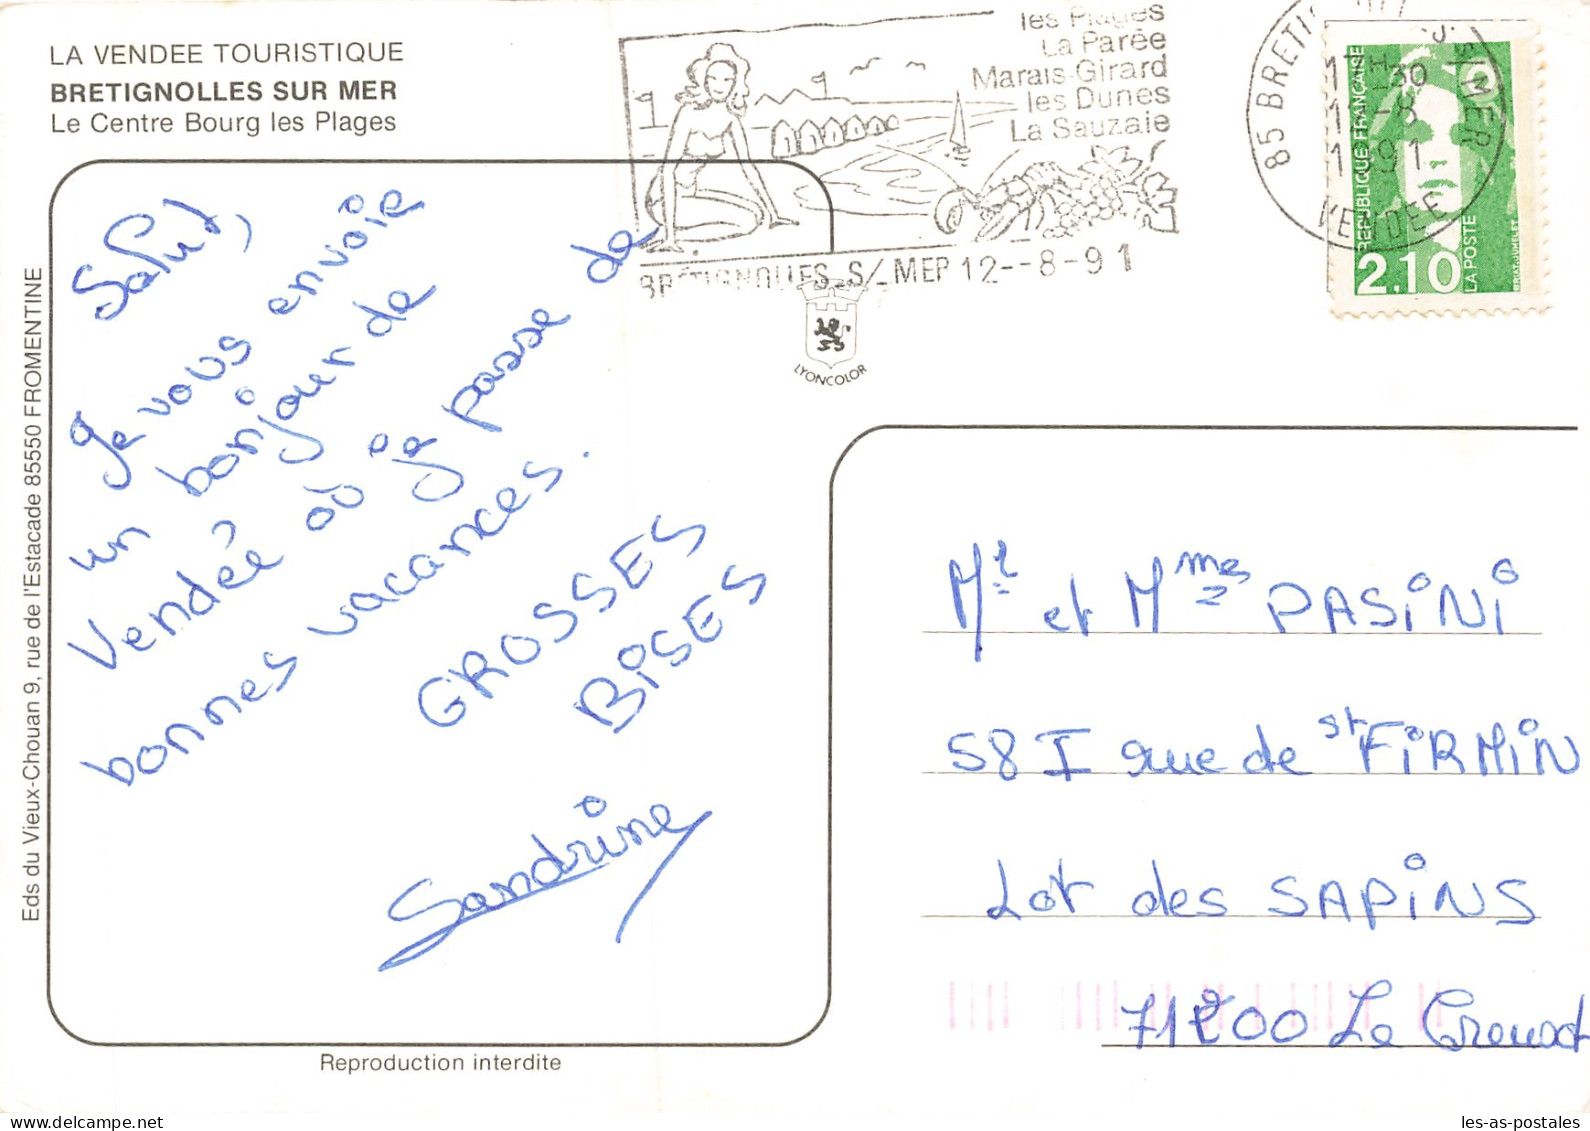 LA VENDEE TOURISTIQUE
BRETIGNOLLES SUR MER
Le Centre Bourg les Plages
les Plages
La Parée
Marais-Girard
les Dunes
La Sauzaie
BRÉTIGNOLLES S/ MER 12--8-91
LYONCOLOR
85 BRETI
S/MER
30
-8
91
VENDEE
REPUBLIQUE FRANÇAISE
LA POSTE
2,10
Eds du Vieux-Chouan 9, rue de l'Estacade 85550 FROMENTINE
Salut,
Je vous envoie
un bonjour de
Vendée où je passe de
bonnes vacances.
GROSSES
BISES
Sandrine
Mr et Mmes PASiNi
58 I rue de st FiRMiN
Lot des SAPiNS
71200 Le Creusot
Reproduction interdite
les-as-postales